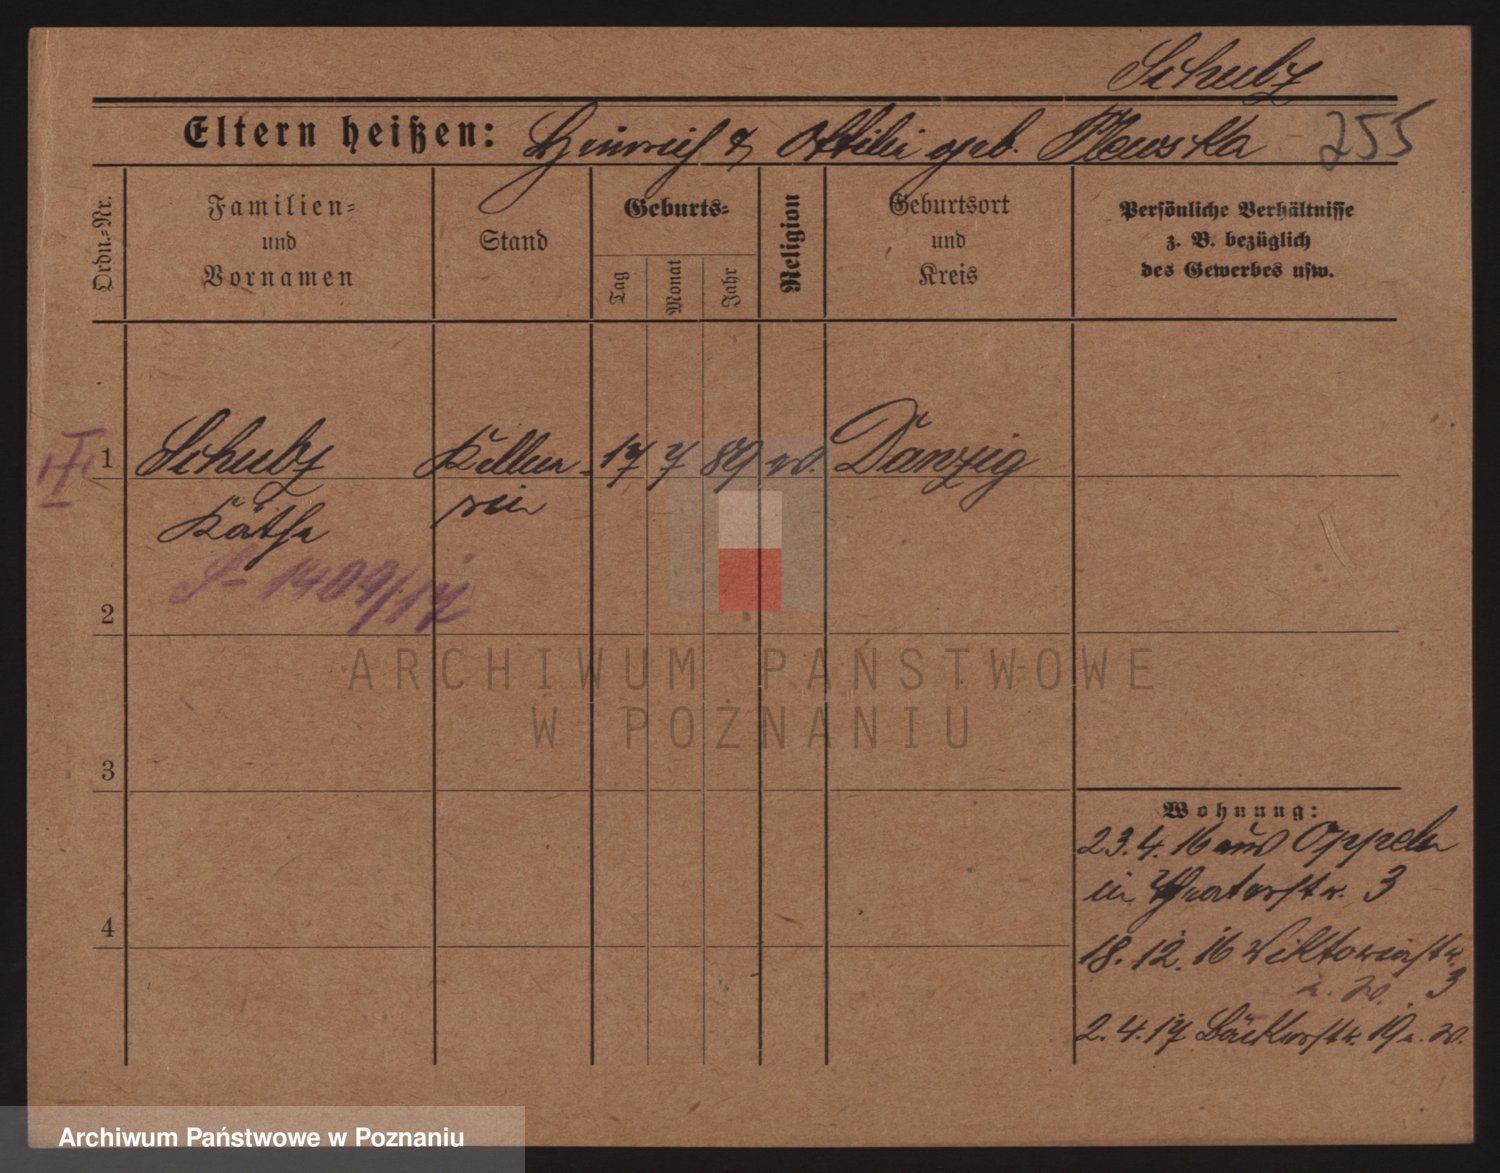 Schulz
Eltern heißen: Heinrich & Ottilie geb. Plewska 255
Ordn.-Nr.
Familien- und Vornamen
Stand
Geburts-
Tag
Monat
Jahr
Religion
Geburtsort und Kreis
Persönliche Verhältnisse
z. B. bezüglich
des Gewerbes usw.
I
1 Schulz Kellne- 17 7 89 ev. Danzig
Käthe rin
1409/17
2
3
4
ARCHIWUM PAŃSTWOWE
W POZNANIU
Wohnung:
23.4.16 aus Oppeln
in Theaterstr. 3
18.12.16 Viktoriastr.
3
2.4.17 Bäckerstr. 19
Archiwum Państwowe w Poznaniu